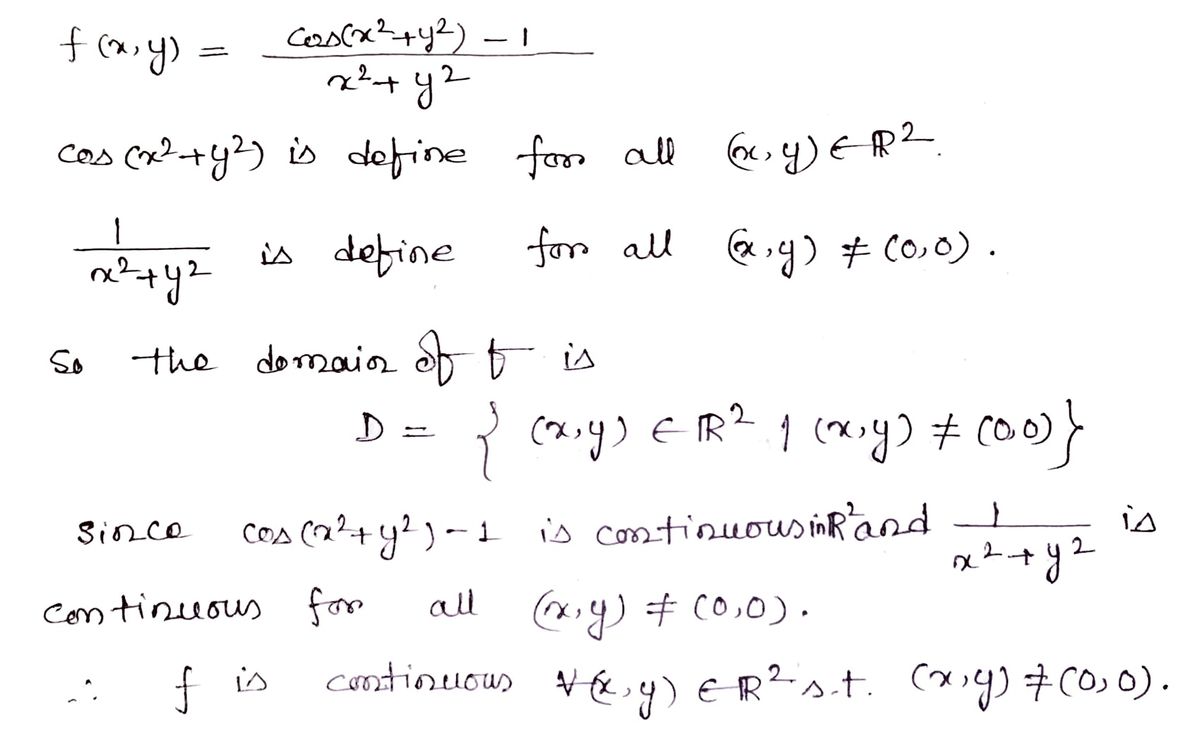 f(x,y) = (cos(x²+y²) - 1) / (x²+y²)
cos(x²+y²) is define for all (x,y) ∈ ℝ².
1/(x²+y²) is define for all (x,y) ≠ (0,0).
So the domain of f is
D = { (x,y) ∈ ℝ² | (x,y) ≠ (0,0) }
Since cos(x²+y²) - 1 is continuous in ℝ² and 1/(x²+y²) is
continuous for all (x,y) ≠ (0,0).
∴ f is continuous ∀ (x,y) ∈ ℝ² s.t. (x,y) ≠ (0,0).